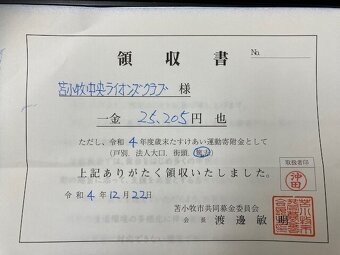 領収書
No.
苫小牧中央ライオンズクラブ 様
一金 25,205円 也
ただし、令和4年度歳末たすけあい運動寄附金として
(戸別、法人大口、街頭、篤志)
上記ありがたく領収いたしました。
取扱者印
沖田
令和 4年12月22日
苫小牧市共同募金委員会
会長 渡邊敏明